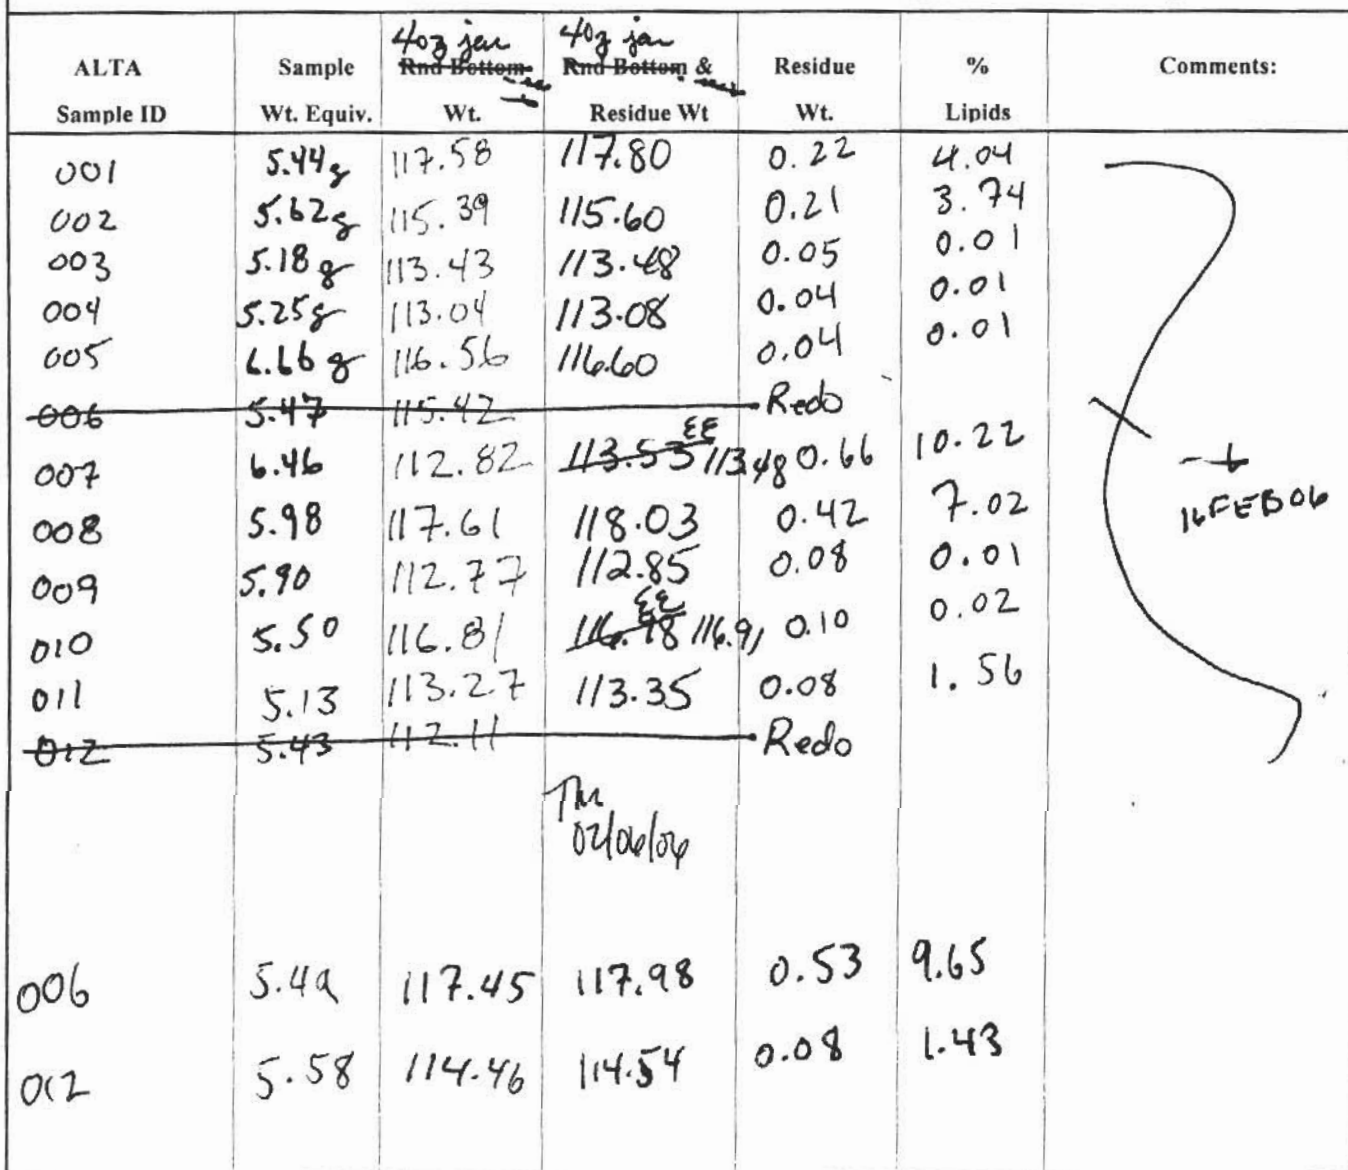 4oz jar 4oz jar
ALTA Sample Rnd Bottom Rnd Bottom & Residue % Comments:
Sample ID Wt. Equiv. Wt. Residue Wt Wt. Lipids
001 5.44g 117.58 117.80 0.22 4.04
002 5.62g 115.39 115.60 0.21 3.74
003 5.18g 113.43 113.48 0.05 0.01
004 5.25g 113.04 113.08 0.04 0.01
005 6.66g 116.56 116.60 0.04 0.01
006 5.47 115.42 Redo
007 6.46 112.82 113.53 EE 113.48 0.66 10.22
16FEB06
008 5.98 117.61 118.03 0.42 7.02
009 5.90 112.77 112.85 0.08 0.01
010 5.50 116.81 116.98 EE 116.91 0.10 0.02
011 5.13 113.27 113.35 0.08 1.56
012 5.43 112.11 Redo
02/06/06
006 5.49 117.45 117.98 0.53 9.65
012 5.58 114.46 114.54 0.08 1.43